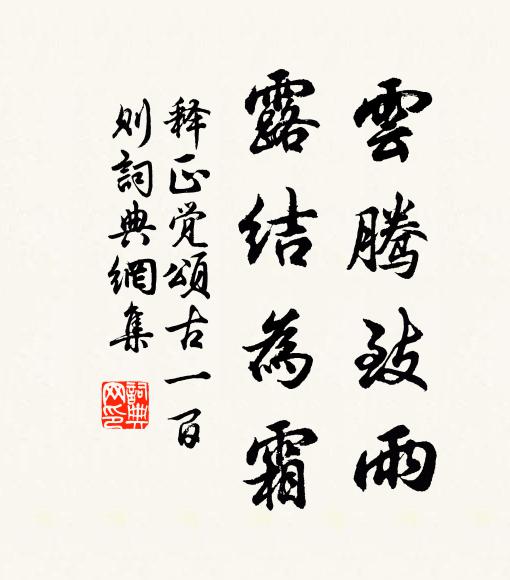 雲騰致雨
露結為霜
释正觉頌古一百
则詞典網集
詞典网印